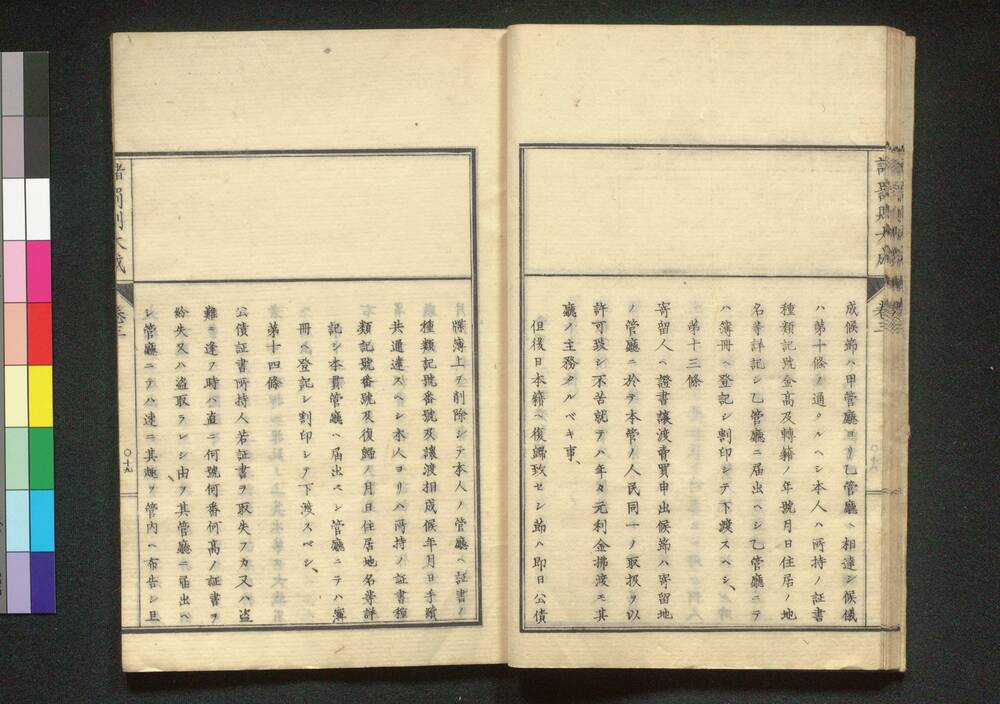 成候節ハ甲管廳ヨリ乙管廳ヘ相達シ候儀
ハ第十條ノ通タルヘシ本人ハ所持ノ証書
種類記號金高及轉籍ノ年號月日住居ノ地
名等詳記シ乙管廳ニ届出ヘシ乙管廳ニテ
ハ簿冊ヘ登記シ割印シテ下渡スヘシ、
第十三條
寄留人ヘ證書讓渡賣買申出候節ハ寄留地
ノ管廳ニ於テ本管ノ人民同一ノ取扱ヲ以
許可致シ不苦就テハ年々元利金拂渡モ其
廳ノ主務タルベキ事、
但後日本籍ヘ復歸致セシ節ハ即日公債
簿上ヲ削除シテ本人ノ管廳ヘ証書ノ
種類記號番號及讓渡相成候年月日手續
共通達スヘシ本人ヨリハ所持ノ証書種
類記號番號及復歸ノ月日住居地名等詳
記シ本貫管廳ヘ届出ベシ管廳ニテハ簿
冊ヘ登記シ割印シテ下渡スベシ、
第十四條
公債証書所持人若証書ヲ取失フカ又ハ盗
難ニ逢フ時ハ直ニ何號何番何高ノ証書ヲ
紛失又ハ盗取ラレシ由ヲ其管廳ニ届出ヘ
シ管廳ニテハ速ニ其趣ヲ管内ヘ布告シ且
卷三